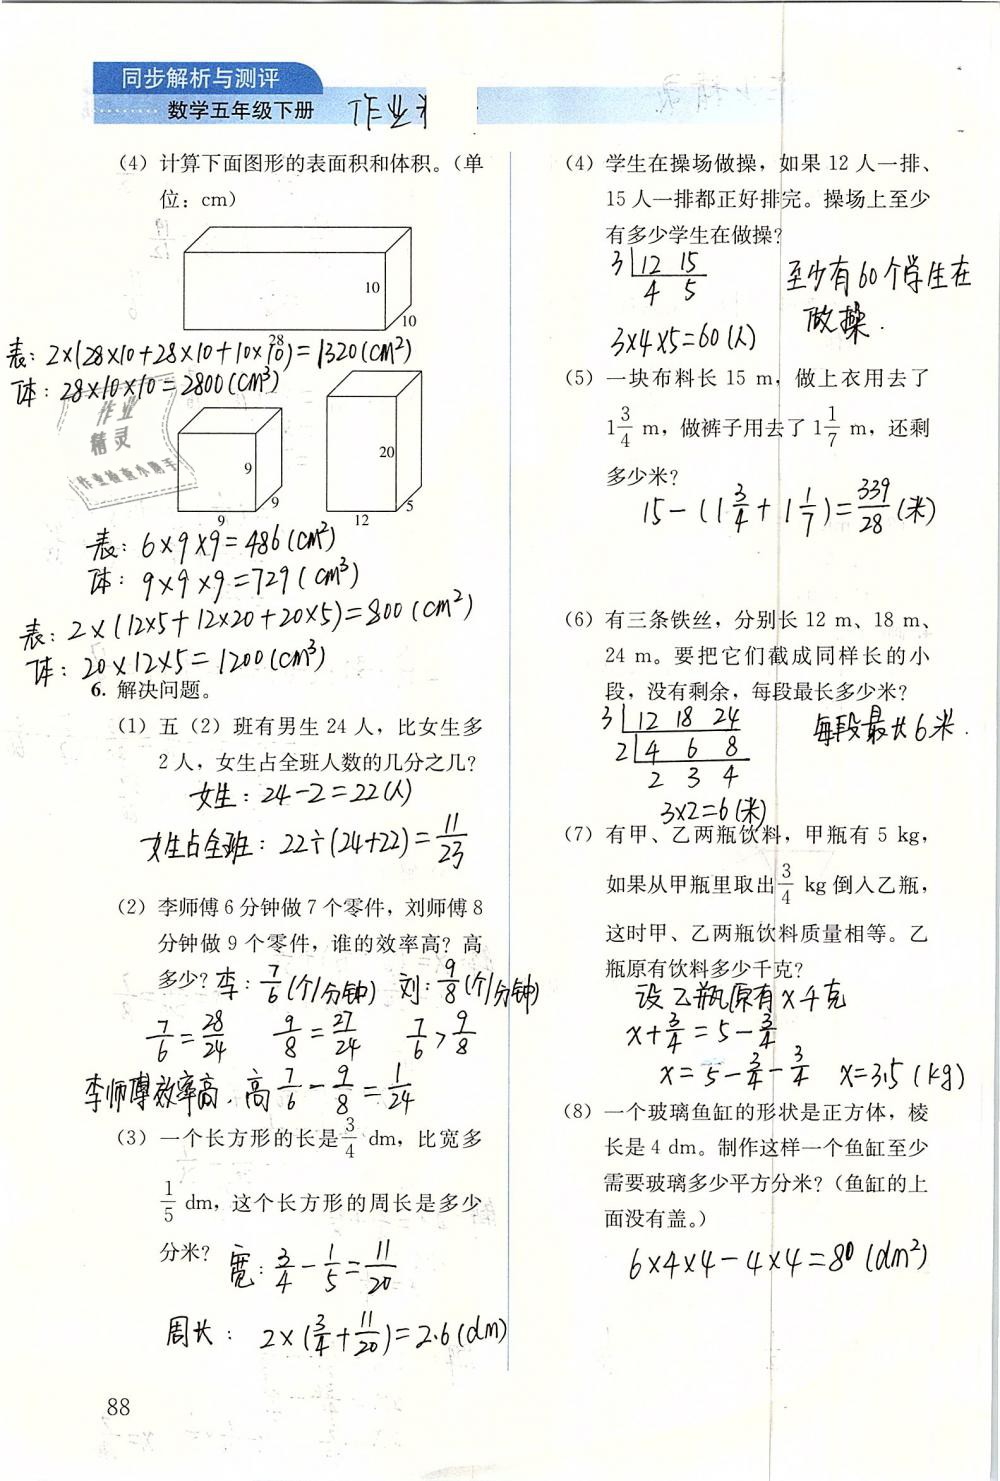 同步解析与测评
数学五年级下册
作业
(4) 计算下面图形的表面积和体积。(单
位：cm)
10
10
28
表：2×(28×10+28×10+10×10)=1320(cm²)
体：28×10×10=2800(cm³)
作业
精灵
作业检查小助手
9
9
9
20
5
12
表：6×9×9=486(cm²)
体：9×9×9=729(cm³)
表：2×(12×5+12×20+20×5)=800(cm²)
体：20×12×5=1200(cm³)
6. 解决问题。
(1) 五（2）班有男生 24 人，比女生多
2 人，女生占全班人数的几分之几？
女生：24-2=22(人)
女生占全班：22÷(24+22)=11/23
(2) 李师傅 6 分钟做 7 个零件，刘师傅 8
分钟做 9 个零件，谁的效率高？高
多少？李：7/6(个/分钟) 刘：9/8(个/分钟)
7/6=28/24 9/8=27/24 7/6>9/8
李师傅效率高. 高7/6-9/8=1/24
(3) 一个长方形的长是3/4 dm，比宽多
1/5 dm，这个长方形的周长是多少
分米？宽：3/4-1/5=11/20
周长：2×(3/4+11/20)=2.6(dm)
88
(4) 学生在操场做操，如果 12 人一排、
15 人一排都正好排完。操场上至少
有多少学生在做操？
3 12 15
4 5
3×4×5=60(人)
至少有60个学生在
做操.
(5) 一块布料长 15 m，做上衣用去了
1 3/4 m，做裤子用去了 1 1/7 m，还剩
多少米？
15-(1 3/4+1 1/7)=339/28(米)
(6) 有三条铁丝，分别长 12 m、18 m、
24 m。要把它们截成同样长的小
段，没有剩余，每段最长多少米？
3 12 18 24
2 4 6 8
2 3 4
3×2=6(米)
每段最长6米.
(7) 有甲、乙两瓶饮料，甲瓶有 5 kg，
如果从甲瓶里取出3/4 kg 倒入乙瓶，
这时甲、乙两瓶饮料质量相等。乙
瓶原有饮料多少千克？
设乙瓶原有x千克
x+3/4=5-3/4
x=5-3/4-3/4 x=3.5(kg)
(8) 一个玻璃鱼缸的形状是正方体，棱
长是 4 dm。制作这样一个鱼缸至少
需要玻璃多少平方分米？（鱼缸的上
面没有盖。）
6×4×4-4×4=80(dm²)